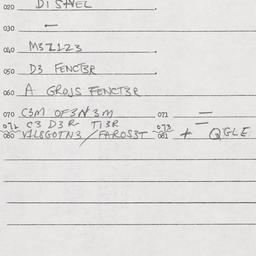 020 DISNEL
030 —
040 M3Z123
050 D3 FENCT3R
060 A GROJS FENCT3R
070 C3M OF3N3M 072 —
071 C3 D3R TI3R 073 —
080 V1L8GOTN3/FAROS3T 081 + Q3GLE